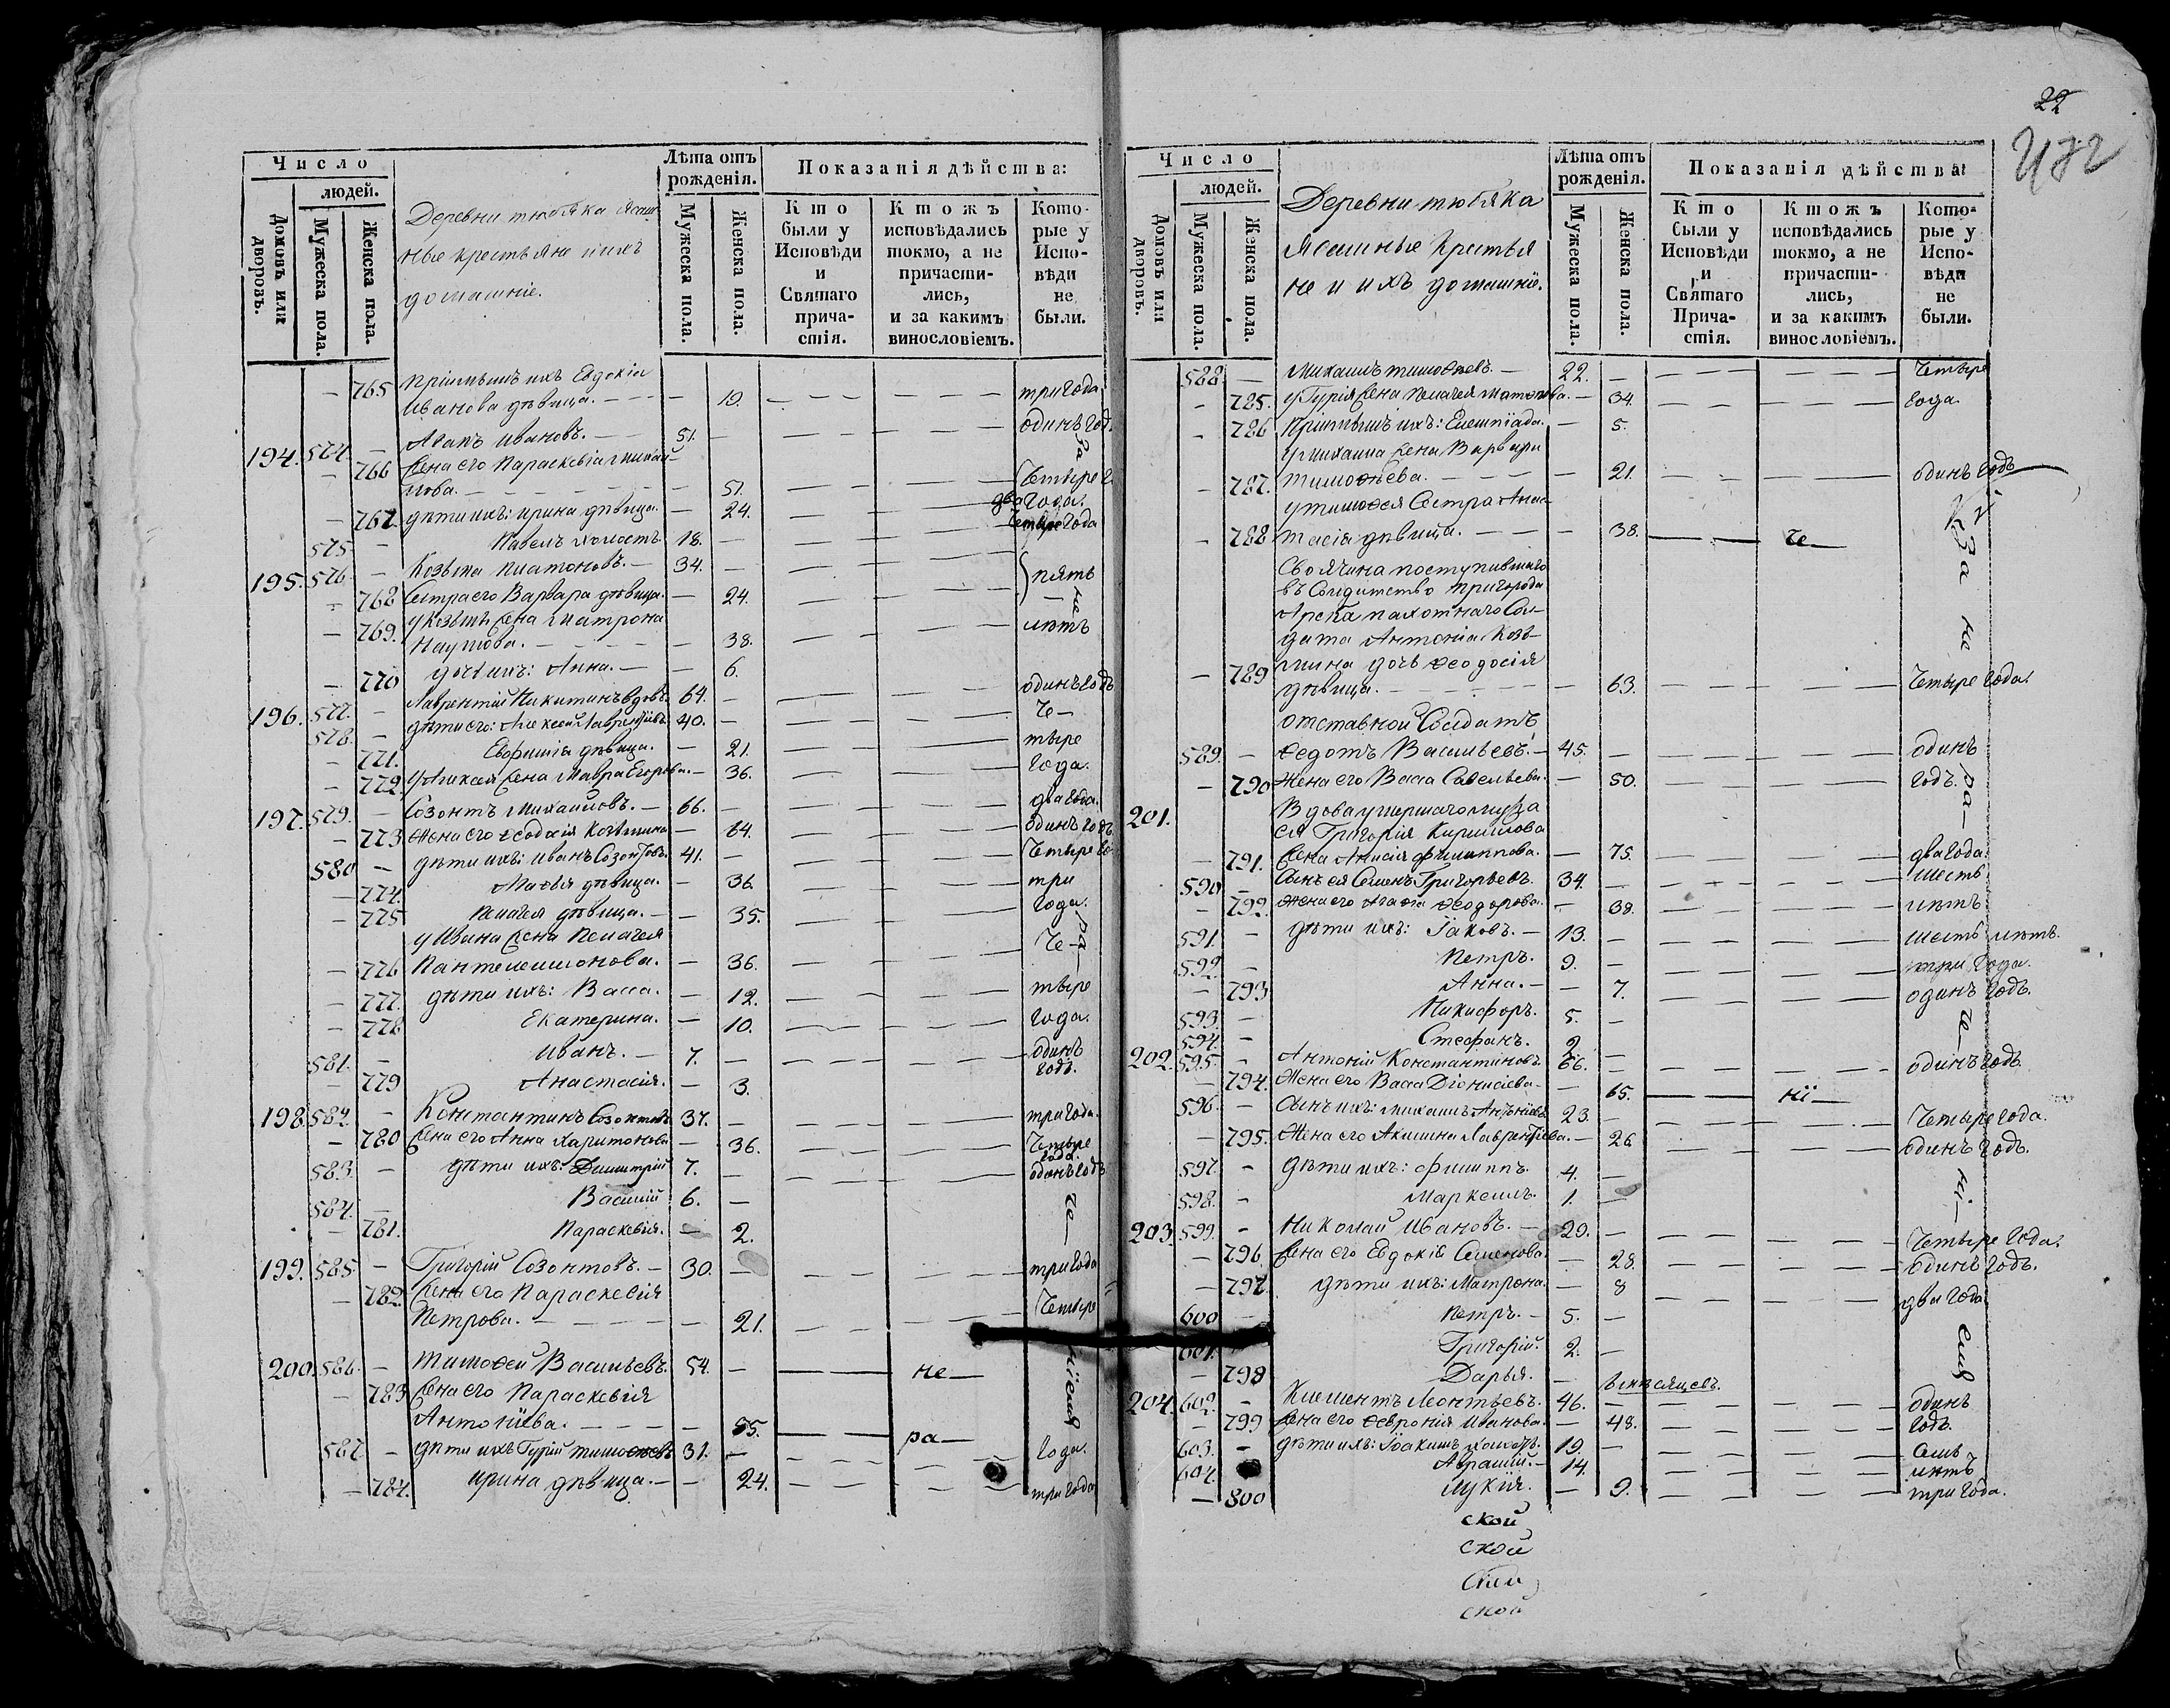 Число
людей.
Домовъ или дворовъ.
Мужеска пола.
Женска пола.
Деревни тюбяка ясаш
ные крестьяне и ихъ
домашніе.
Лѣта отъ
рожденія.
Мужеска пола.
Женска пола.
Показанія дѣйства:
Кто
были у
Исповѣди
и
Святаго
прича-
стія.
Ктожъ
исповѣдались
токмо, а не
причасти-
лись,
и за какимъ
винословіемъ.
Кото-
рые у
Испо-
вѣди
не
были.
— 765 пріимышъ ихъ Евдокія
Иванова дѣвица. — — 19. три года.
194. 574. — Агапъ Ивановъ. — 51. — одинъ год.
— 766 Жена его Параскевіа михай-
лова. — — 51. четыре г
— 767. дѣти ихъ: ирина дѣвица. — 24. два года.
575 — Павелъ холостъ 18. — четыре года
195. 576. — Козьма платоновъ. — 34. — пять
— 768 Сестра его Варвара дѣвица. — 24.
— 769. у Козьмы Жена матрона
Наумова. — — 38. лѣтъ
— 770 дочь ихъ: Анна. — — 6.
196. 577. — Лаврентій Никитинъ вдовъ. 64. — одинъ годъ
578. — дѣти его: Алексей Лаврентьевъ 40. — че-
— 771. Евфимія дѣвица. — 21. тыре
— 772. У Алексея Жена Мавра Егорова. — 36. года.
197. 579. — Созонтъ Михаиловъ. — 66. — два года.
— 773 Жена его Ѳеодосія Козьмина — 64. одинъ годъ
580 — дѣти ихъ: Иванъ Созонтовъ. 41. — четыре го
— 774. Марья дѣвица. — 36. три
— 775 Пелагея дѣвица. — — 35. года.
у Ивана Жена Пелагея
— 776 Пантелеимонова. — 36. че-
— 777. дѣти ихъ: Васса. — 12. тыре
— 778 Екатерина. — 10. года.
581. — Иванъ. — 7. — одинъ
годъ.
— 779 Анастасія. — 3.
198. 582. — Константинъ Созонтовъ 37. — три года.
— 780 Жена его Анна Харитонова — 36. четыре
года.
583. — дѣти ихъ: Димитрій 7. — одинъ годъ
584. — Василій 6. —
— 781. Параскевія. — 2.
199. 585. — Григорій Созонтовъ. — 30. — три года
— 782. Жена его Параскевія
Петрова. — — 21. четыре
200. 586. — Тимоѳей Васильевъ. 54. — — не —
— 783 Жена его Параскевія
Антоніева. — — 55. — ра —
587. — дѣти ихъ Гурій тимоѳеевъ 31. — года.
— 784. ирина дѣвица. — — 24. три года
22
Число
людей.
Домовъ или дворовъ.
Мужеска пола.
Женска пола.
Деревни тюбяка
ясашные крестья
не и ихъ домашніе.
Лѣта отъ
рожденія.
Мужеска пола.
Женска пола.
Показанія дѣйства:
Кто
были у
Исповѣди
и
Святаго
Прича-
стія.
Ктожъ
исповѣдались
токмо, а не
причасти-
лись,
и за какимъ
винословіемъ.
Кото-
рые у
Испо-
вѣди
не
были.
588 — Михаилъ тимоѳеевъ. — 22. — четыре
— 785. у Гурія Жена Пелагея Матв — 34. года.
— 786 Пріимышъ ихъ: — 5.
у михаила Жена Варвара
— 787. тимоѳеева. — — 21. одинъ годъ
у тимоѳея Сестра Анас
— 788 тасія дѣвица. — — 38. — че —
Своячина поступившаго
въ Солдатство пригорода
Арска пахотнаго Сол-
дата Антонія Козь-
— 789 мина дочь Ѳеодосія
дѣвица. — — 63. четыре года.
отставной Солдатъ
589. — Ѳедотъ Васильевъ. — 45. — одинъ
— 790 Жена его Васса Савельева. — 50. годъ.
201. Вдова умершаго мужа
ея Григорія Кирилова
— 791. Жена Анисія филиппова. — 75. два года.
590 — Сынъ ея Семенъ Григорьевъ. 34. — шесть
— 792. Жена его Агаѳія Ѳеодорова. — 38. лѣтъ
591. — дѣти ихъ: Іаковъ. — 13. — шесть лѣтъ.
592. — Петръ. 9. — три года.
— 793 Анна. — — 7. одинъ годъ.
593. — Никифоръ. 5. —
594. — Стефанъ. 2. —
202. 595. — Антоній Константиновъ. 66. — одинъ годъ
— 794. Жена его Васса Діонисіева — — 65. — ні —
596. — Сынъ ихъ: михаилъ Антоніевъ 23. — четыре года.
— 795. Жена его Акилина Лаврентіева. — 26 одинъ годъ.
597. — дѣти ихъ: филиппъ. 4. —
598. — Маркеллъ. 1. —
203. 599. — Николай Ивановъ. — 29. — четыре года.
— 796. Жена его Евдокія Семенова. — 28. одинъ годъ.
— 797. дѣти ихъ: Матрона. — 8 два года
600 — Петръ. — 5. —
601. Григорій. 2. —
— 798 Дарья. — мѣсяцевъ.
204. 602. — Климентъ Леонтьевъ. 46. — одинъ
— 799 Жена его Ѳевронія Иванова. — 48. годъ.
603. — дѣти ихъ: Іоакимъ холостъ. 19. — семь
604. Аврамій. — 14. лѣтъ
— 800 Лукія. — 9. три года.
ской
ской
ской